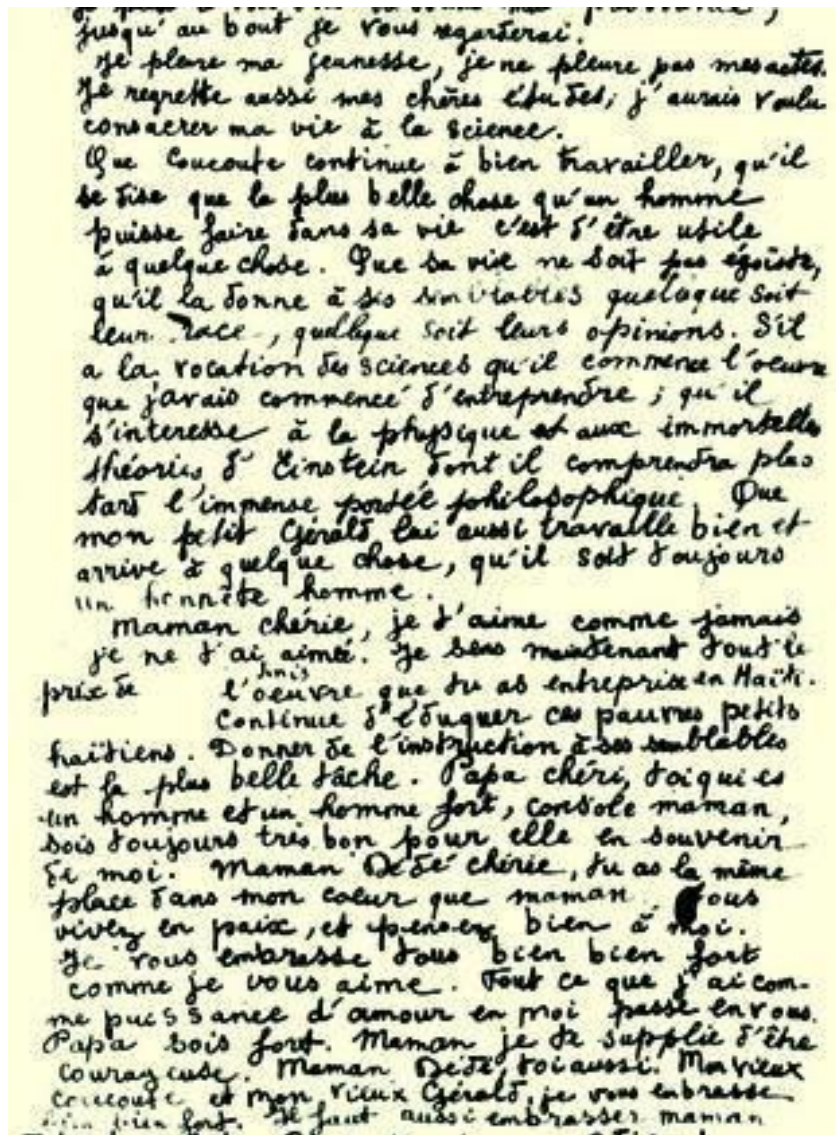 jusqu'au bout je vous regarderai.
Je pleure ma jeunesse, je ne pleure pas mes actes.
Je regrette aussi mes chères études, j'aurais voulu
consacrer ma vie à la science.
Que Coucoute continue à bien travailler, qu'il
se dise que la plus belle chose qu'un homme
puisse faire dans sa vie c'est d'être utile
à quelque chose. Que sa vie ne soit pas égoïste,
qu'il la donne à ses semblables quelque soit
leur race, quelque soit leurs opinions. S'il
a la vocation des sciences qu'il commence l'oeuvre
que j'avais commencé d'entreprendre ; qu'il
s'interesse à la physique et aux immortelles
théories d'Einstein dont il comprendra plus
tard l'immense portée philosophique. Que
mon petit Gérald lui aussi travaille bien et
arrive à quelque chose, qu'il soit toujours
un honnête homme.
Maman chérie, je t'aime comme jamais
je ne t'ai aimé. Je sens maintenant tout le
prix de l'oeuvre que tu as entreprise en Haïti.
Continue d'éduquer ces pauvres petits
haïtiens. Donner de l'instruction à ses semblables
est la plus belle tâche. Papa chéri, toi qui es
un homme et un homme fort, console maman,
sois toujours très bon pour elle en souvenir
de moi. Maman Dédé chérie, tu as la même
place dans mon coeur que maman. Tous
vivez en paix, et pensez bien à moi.
Je vous embrasse tous bien bien fort
comme je vous aime. Tout ce que j'ai com-
me puissance d'amour en moi passe en vous.
Papa sois fort. Maman je te supplie d'être
courageuse. Maman Dédé, toi aussi. Mon vieux
Coucoute et mon vieux Gérald, je vous embrasse
bien bien fort. Il faut aussi embrasser maman